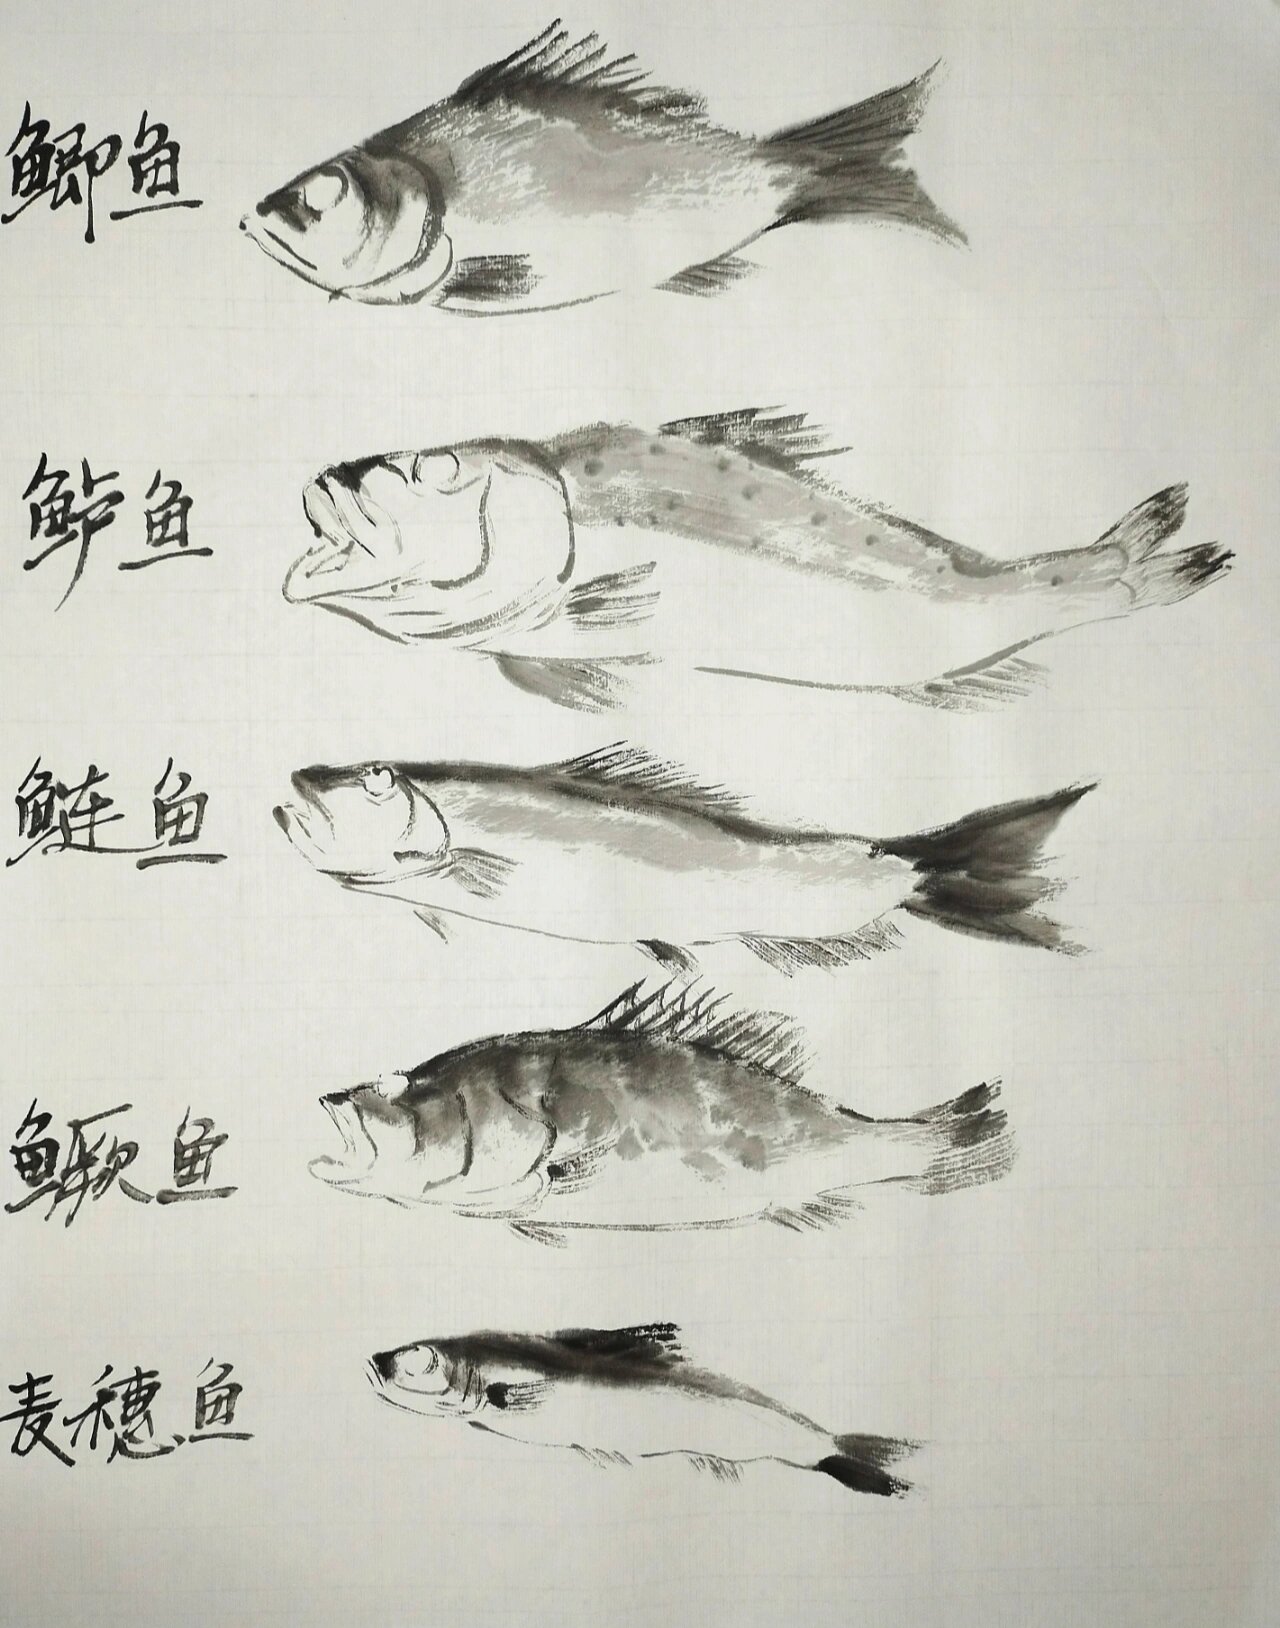 鲫鱼
鲈鱼
鲢鱼
鳜鱼
麦穗鱼